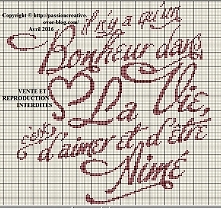 Copyright © http://passioncreative.
over-blog.com
Avril 2016
il n'y a qu'un
Bonheur dans
La Vie,
c'est
d'aimer et d'être
Aimé
VENTE ET
REPRODUCTION
INTERDITES